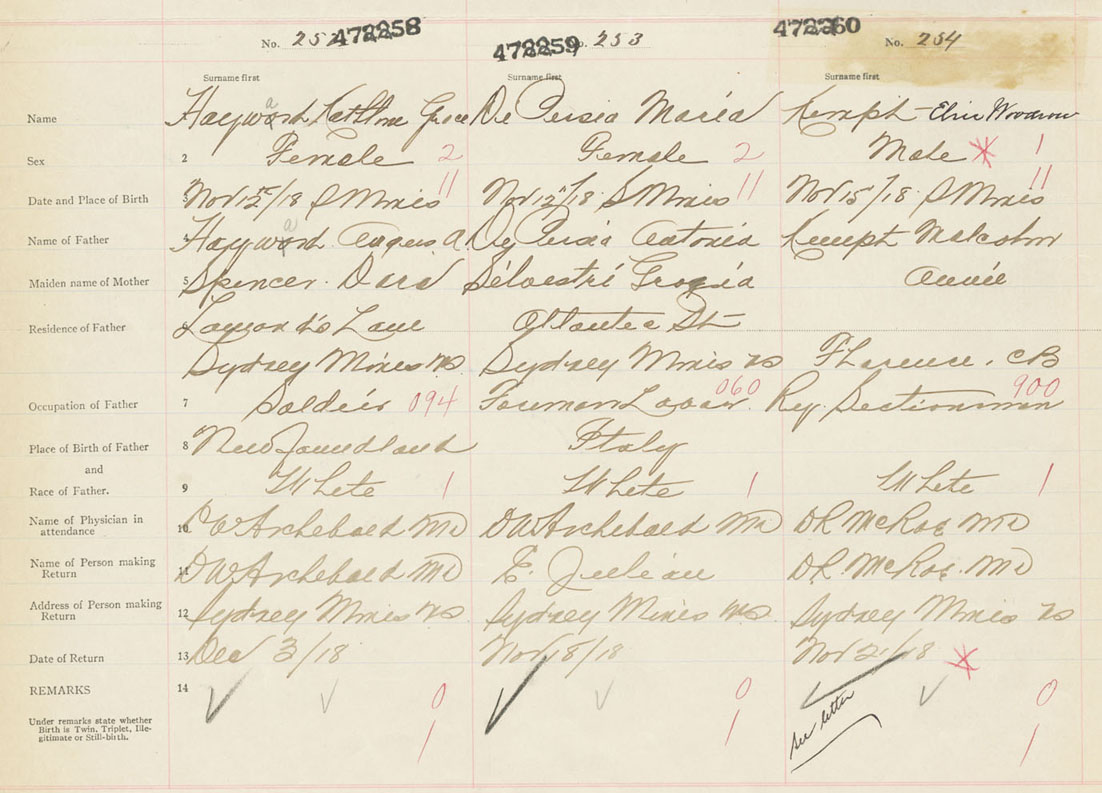 No. 252 472258 472259 No. 253 472260 No. 254
Surname first Surname first Surname first
Name Hayward Kathleen Grace De Persia Maria Kempt Elvin Woodrow
Sex 2 Female 2 Female 2 Male * 1
Date and Place of Birth 3 Nov 15/18 S Mines 11 Nov 12/18 S Mines 11 Nov 15/18 S Mines 11
Name of Father 4 Hayward Angus A. De Persia Antonia Kempt Malcolm
Maiden name of Mother 5 Spencer Silvestri Annie
Residence of Father 6 Lane Atlantic St
Sydney Mines NS Sydney Mines NS Florence, CB
Occupation of Father 7 Soldier 094 Foreman 060 Ry. Sectionman 900
Place of Birth of Father 8 Newfoundland Italy
and
Race of Father. 9 White 1 White 1 White 1
Name of Physician in
attendance 10 DW Archibald MD DW Archibald MD DR McRae MD
Name of Person making
Return 11 DW Archibald MD E. Julian DR. McRae. MD
Address of Person making
Return 12 Sydney Mines NS Sydney Mines NS Sydney Mines NS
Date of Return 13 Dec 3/18 Nov 18/18 Nov 21/18 *
REMARKS 14 0 0 0
Under remarks state whether
Birth is Twin, Triplet, Ille-
gitimate or Still-birth. 1 1 see letter 1